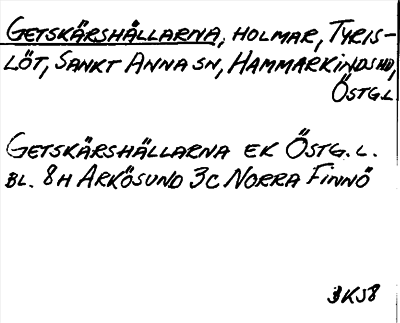 GETSKÄRSHÄLLARNA, HOLMAR, TYRIS-
LÖT, SANKT ANNA SN, HAMMARKINDS HD,
ÖSTG.L.
GETSKÄRSHÄLLARNA EK ÖSTG.L.
BL. 8H ARKÖSUND 3C NORRA FINNÖ